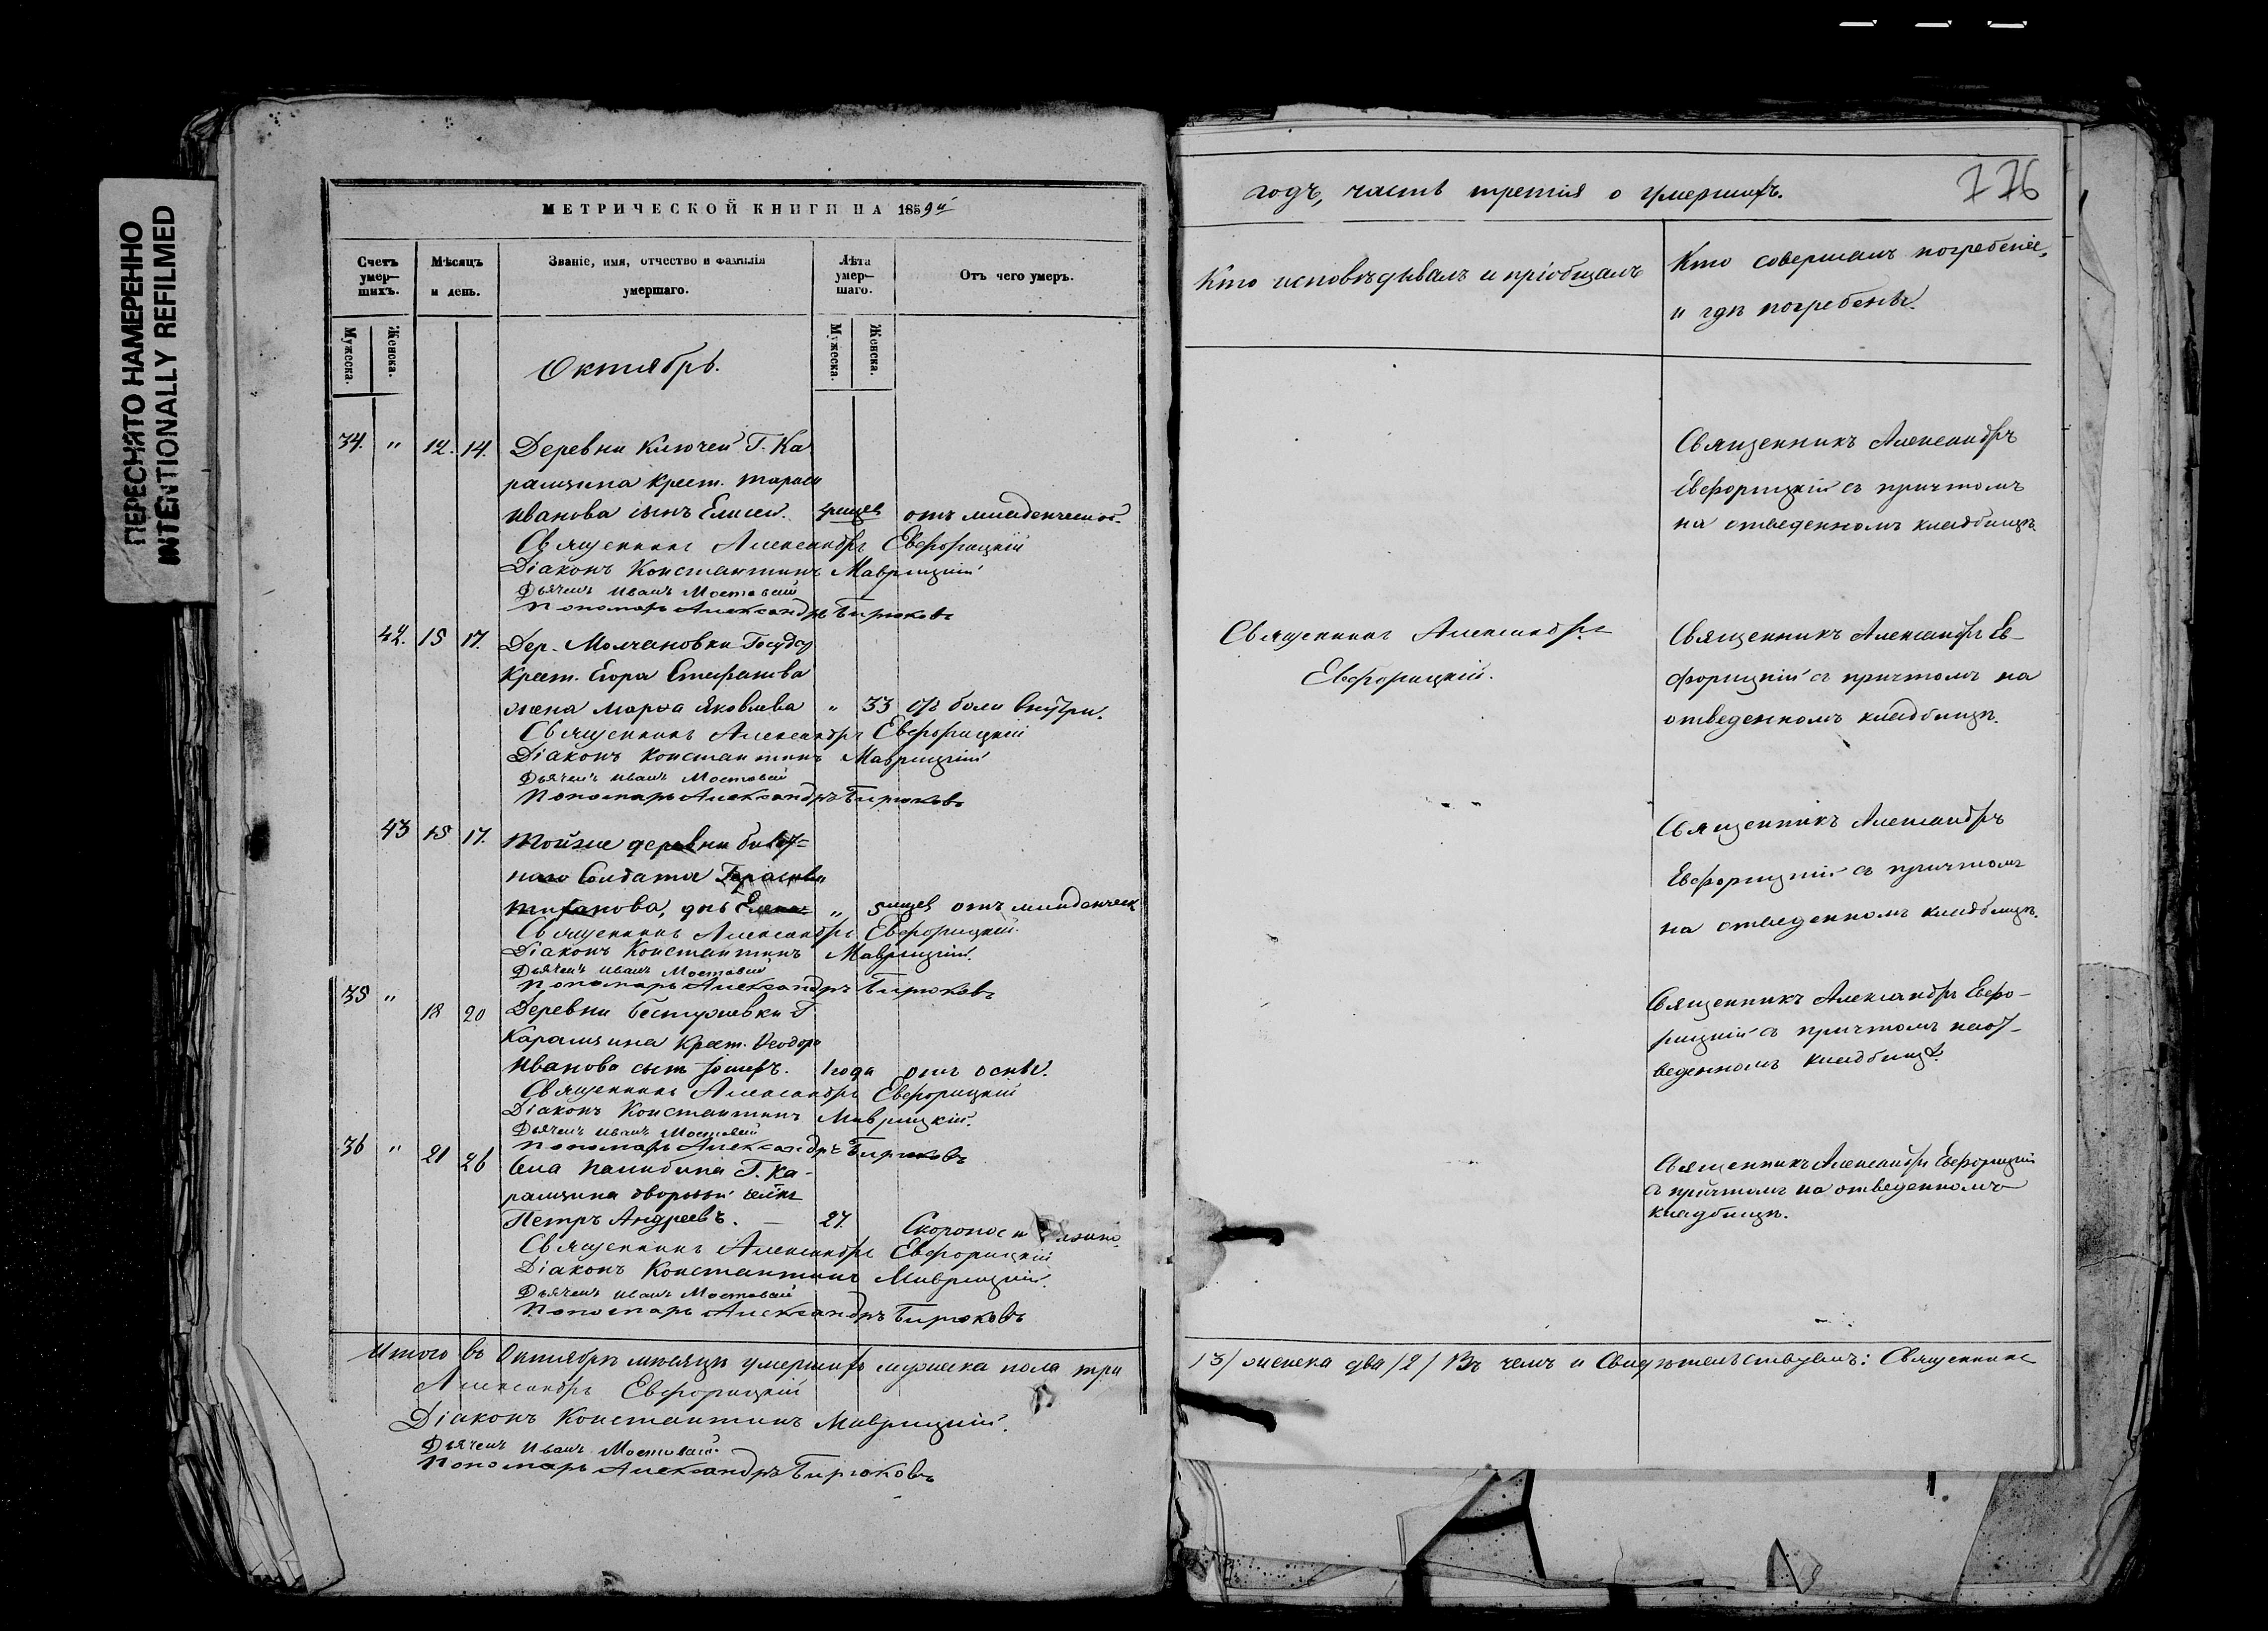 ПЕРЕСНЯТО НАМЕРЕННО
INTENTIONALLY REFILMED
МЕТРИЧЕСКОЙ КНИГИ НА 1859й
Счетъ умер-шихъ.
Мѣсяцъ и день.
Званіе, имя, отчество и фамилія умершаго.
Лѣта умер-шаго.
Отъ чего умеръ.
Мужеска.
Женска.
Мужеска.
Женска.
Октябрь.
34. " 12. 14. Деревни Ключей Г. Ка
рамзина крест. Тараса
Иванова сынъ Елисей. отъ младенческой
Священникъ Александръ Евфорицкій
Діаконъ Константинъ Маврицкій
Дьячекъ Иванъ Мостовой
Пономарь Александръ Бирюковъ
42. 15 17. Дер. Молчановки Государ
Крест. Егора Стефанова
жена Марѳа Яковлева " 33 отъ боли внутри.
Священникъ Александръ Евфорицкій
Діаконъ Константинъ Маврицкій
Дьячекъ Иванъ Мостовой
Пономарь Александръ Бирюковъ
43 15 17. Тойже деревни
наго Солдата
дчь Елена " 5 мцев отъ младенческ
Священникъ Александръ Евфорицкій
Діаконъ Константинъ Маврицкій.
Дьячекъ Иванъ Мостовой
Пономарь Александръ Бирюковъ
35 " 18 20 Деревни Бестужевки Г.
Карамзина Крест. Ѳеодора
Иванова сынъ Іосифъ. 1 года отъ оспы.
Священникъ Александръ Евфорицкій
Діаконъ Константинъ Маврицкій.
Дьячекъ Иванъ Мостовой
Пономарь Александръ Бирюковъ
36 " 21 26 Села Г. Ка-
рамзина дворовый
Петръ Андреевъ. — 27.
Священникъ Александръ Евфорицкій
Діаконъ Константинъ Маврицкій.
Дьячекъ Иванъ Мостовой
Пономарь Александръ Бирюковъ
Итого въ Октябрѣ мѣсяцѣ умершихъ мужеска пола три
Александръ Евфорицкій
Діаконъ Константинъ Маврицкій.
Дьячекъ Иванъ Мостовой.
Пономарь Александръ Бирюковъ
776
годъ, часть третія о умершихъ.
Кто исповѣдывалъ и пріобщалъ
Кто совершалъ погребеніе,
и гдѣ погребены.
Священникъ Александръ
Евфорицкій съ причтомъ
на отведенномъ кладбищѣ.
Священникъ Александръ
Евфорицкій.
Священникъ Александръ Ев-
форицкій съ причтомъ на
отведенномъ кладбищѣ.
Священникъ Александръ
Евфорицкій съ причтомъ
на отведенномъ кладбищѣ.
Священникъ Александръ Евфо-
рицкій съ причтомъ на от-
веденномъ кладбищѣ.
Священникъ Александръ Евфорицкій
съ причтомъ на отведенномъ
кладбищѣ.
/3/ женска два /2/ Въ чемъ и Свидѣтельствуемъ: Священникъ